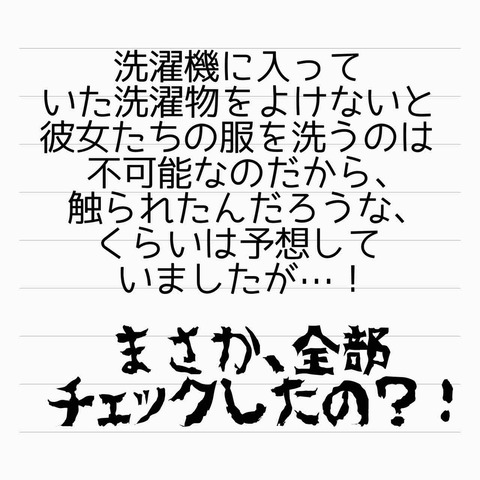 洗濯機に入って
いた洗濯物をよけないと
彼女たちの服を洗うのは
不可能なのだから、
触られたんだろうな、
くらいは予想して
いましたが…！
まさか、全部
チェックしたの？！